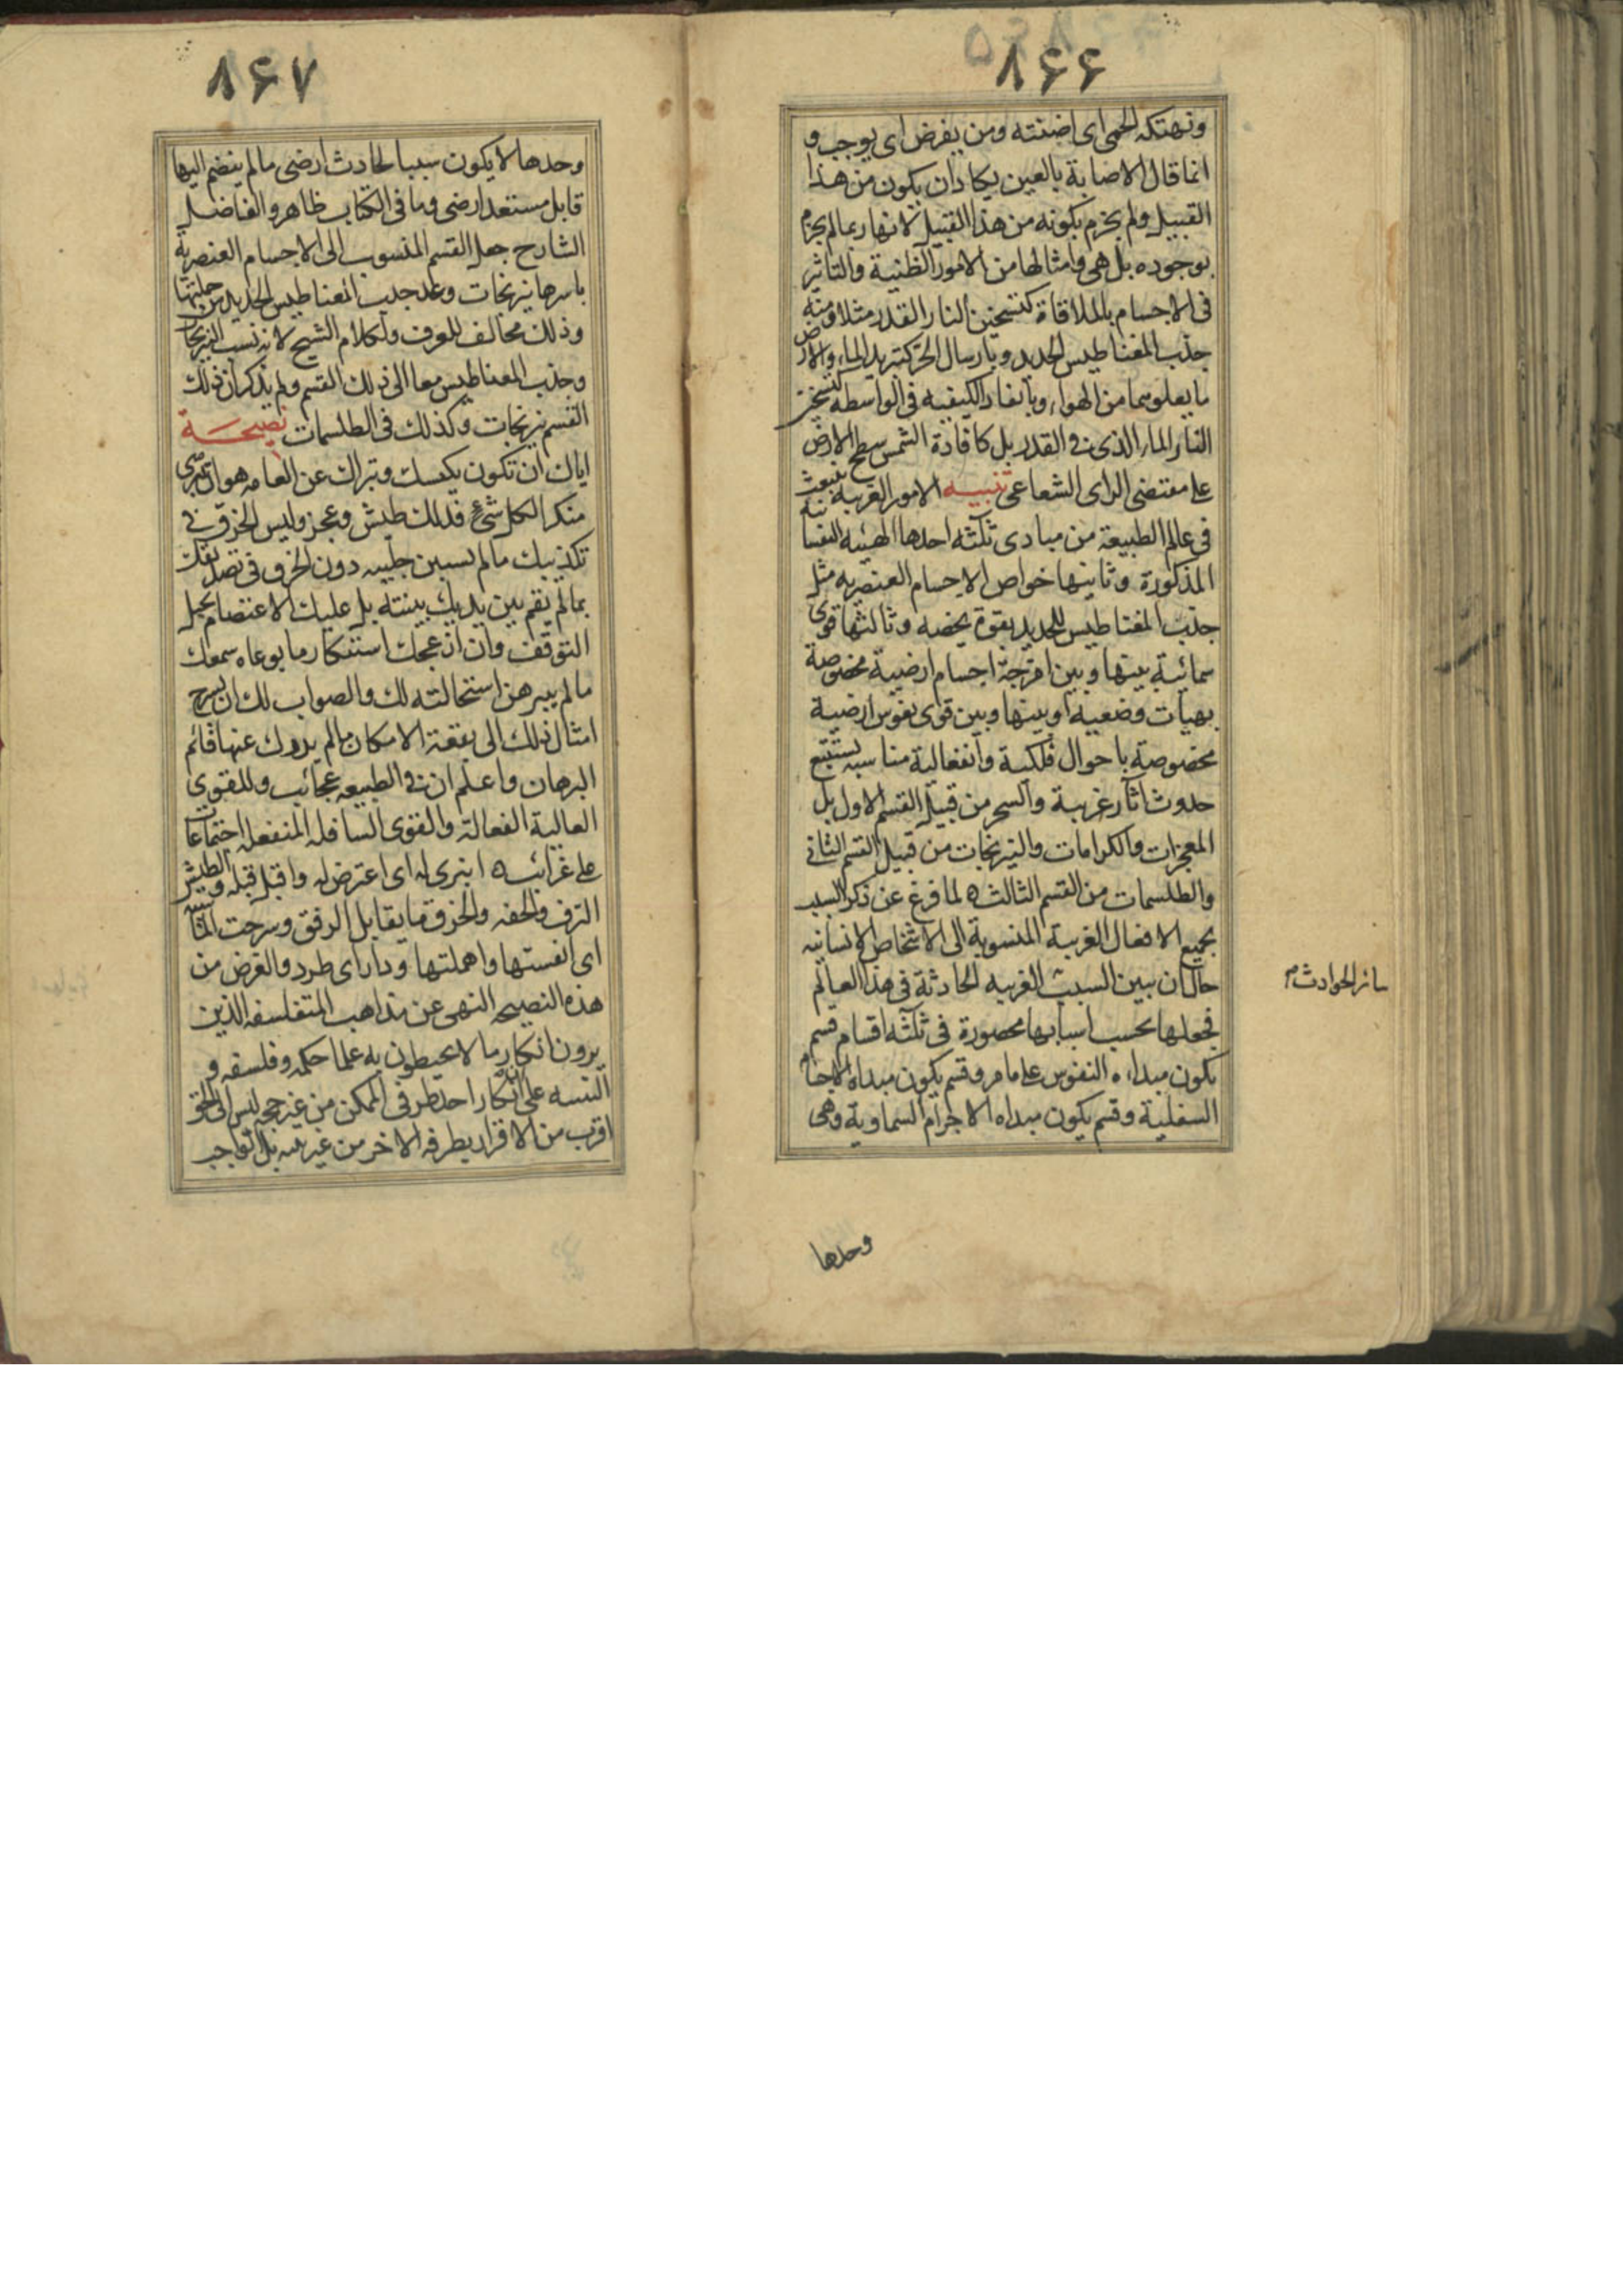 ٨۶۶
ونهتكه الحمى اى اضنته ومن يفرض اى يوجب و
انما قال الاصابة بالعين يكاد ان يكون من هذا
القبيل ولم يجزم بكونه من هذا القبيل لانها ربما لم يجزم
بوجوده بل هى وامثالها من الامور الظنية والتاثير
فى الاجسام بالملاقاة كتسخين النار القدر مثلا ومنه
جذب المغناطيس الحديد وبارسال الحر كتبريد الماء والارض
ما يعلوهما من الهواء وبانفاد الكيفيه فى الواسطه كتسخين
النار الماء الذى فى القدر بل كافادة الشمس سطح الارض
على مقتضى الراى الشعاعى تنبيه الامور الغريبه ينبعث
فى عالم الطبيعة من مبادى ثلثه احدها الهيئه النفسانية
المذكورة وثانيها خواص الاجسام العنصريه مثل
جذب المغناطيس للحديد بقوة يخصه وثالثها قوى
سمائية بينها وبين امزجة اجسام ارضية مخصوصة
بهيات وضعيه او بينها وبين قوى نفوس ارضية
مخصوصة باحوال فلكية وانفعالية مناسبه يستتبع
حدوث آثار غريبة والسحر من قبيل القسم الاول بل
المعجزات والكرامات والنيرنجات من قبيل القسم الثانى
والطلسمات من القسم الثالث ه لما فرغ عن ذكر السبب
بجميع الافعال الغريبة المنسوبة الى الاشخاص الانسانيه
حاول ان يبين السبب الغريبه الحادثة فى هذا العالم
سائر الحوادث م
فجعلها بحسب اسبابها محصورة فى ثلثه اقسام قسم
يكون مبداه النفوس على ما مر وقسم يكون مبداه الاجسام
السفلية وقسم يكون مبداه الاجرام السماوية وهى
وحدها
٨۶٧
وحدها لا يكون سببا لحادث ارضى ما لم ينضم اليها
قابل مستعد ارضى وما فى الكتاب ظاهر والفاضل
الشارح جعل القسم المنسوب الى الاجسام العنصرية
باسرها نيرنجات وعد جذب المغناطيس الحديد من جملتها
وذلك مخالف للعرف ولكلام الشيخ لانه نسب النيرنجات
وجذب المغناطيس معا الى ذلك القسم ولم يذكر ان ذلك
القسم نيرنجات وكذلك فى الطلسمات نصيحة
اياك ان تكون يكسك وتبراك عن العامه هو ان تنبرى
منكرا لكل شئ فذلك طيش وعجز وليس الخرق فى
تكذيبك ما لم يستبين جليبه دون الخرق فى تصديقك
بما لم يقم بين يديك بينته بل عليك الاعتصام بحبل
التوقف وان ازعجك استنكار ما يوعاه سمعك
ما لم يبرهن استحالته لك والصواب لك ان يسرح
امثال ذلك الى بقعة الامكان ما لم يدرك عنها قائم
البرهان واعلم ان فى الطبيعه عجائب وللقوى
العالية الفعالة والقوى السافله المنفعله اجتماعات
على غرائب ه انبرى له اى اعترض له واقبل قبله والطيش
النزف والخفه والخرق ما يقابل الرفق وسرحت الماشية
اى انفستها واهملتها وذاد اى طرد والغرض من
هذه النصيحه النهى عن مذاهب المتفلسفه الذين
يرون انكار ما لا يحيطون به علما حكمه وفلسفه و
التنبيه على ان انكار احد طرفى الممكن من غير حجه ليس الى الحق
اقرب من الاقرار بطرفه الاخر من غير بينه بل الواجب